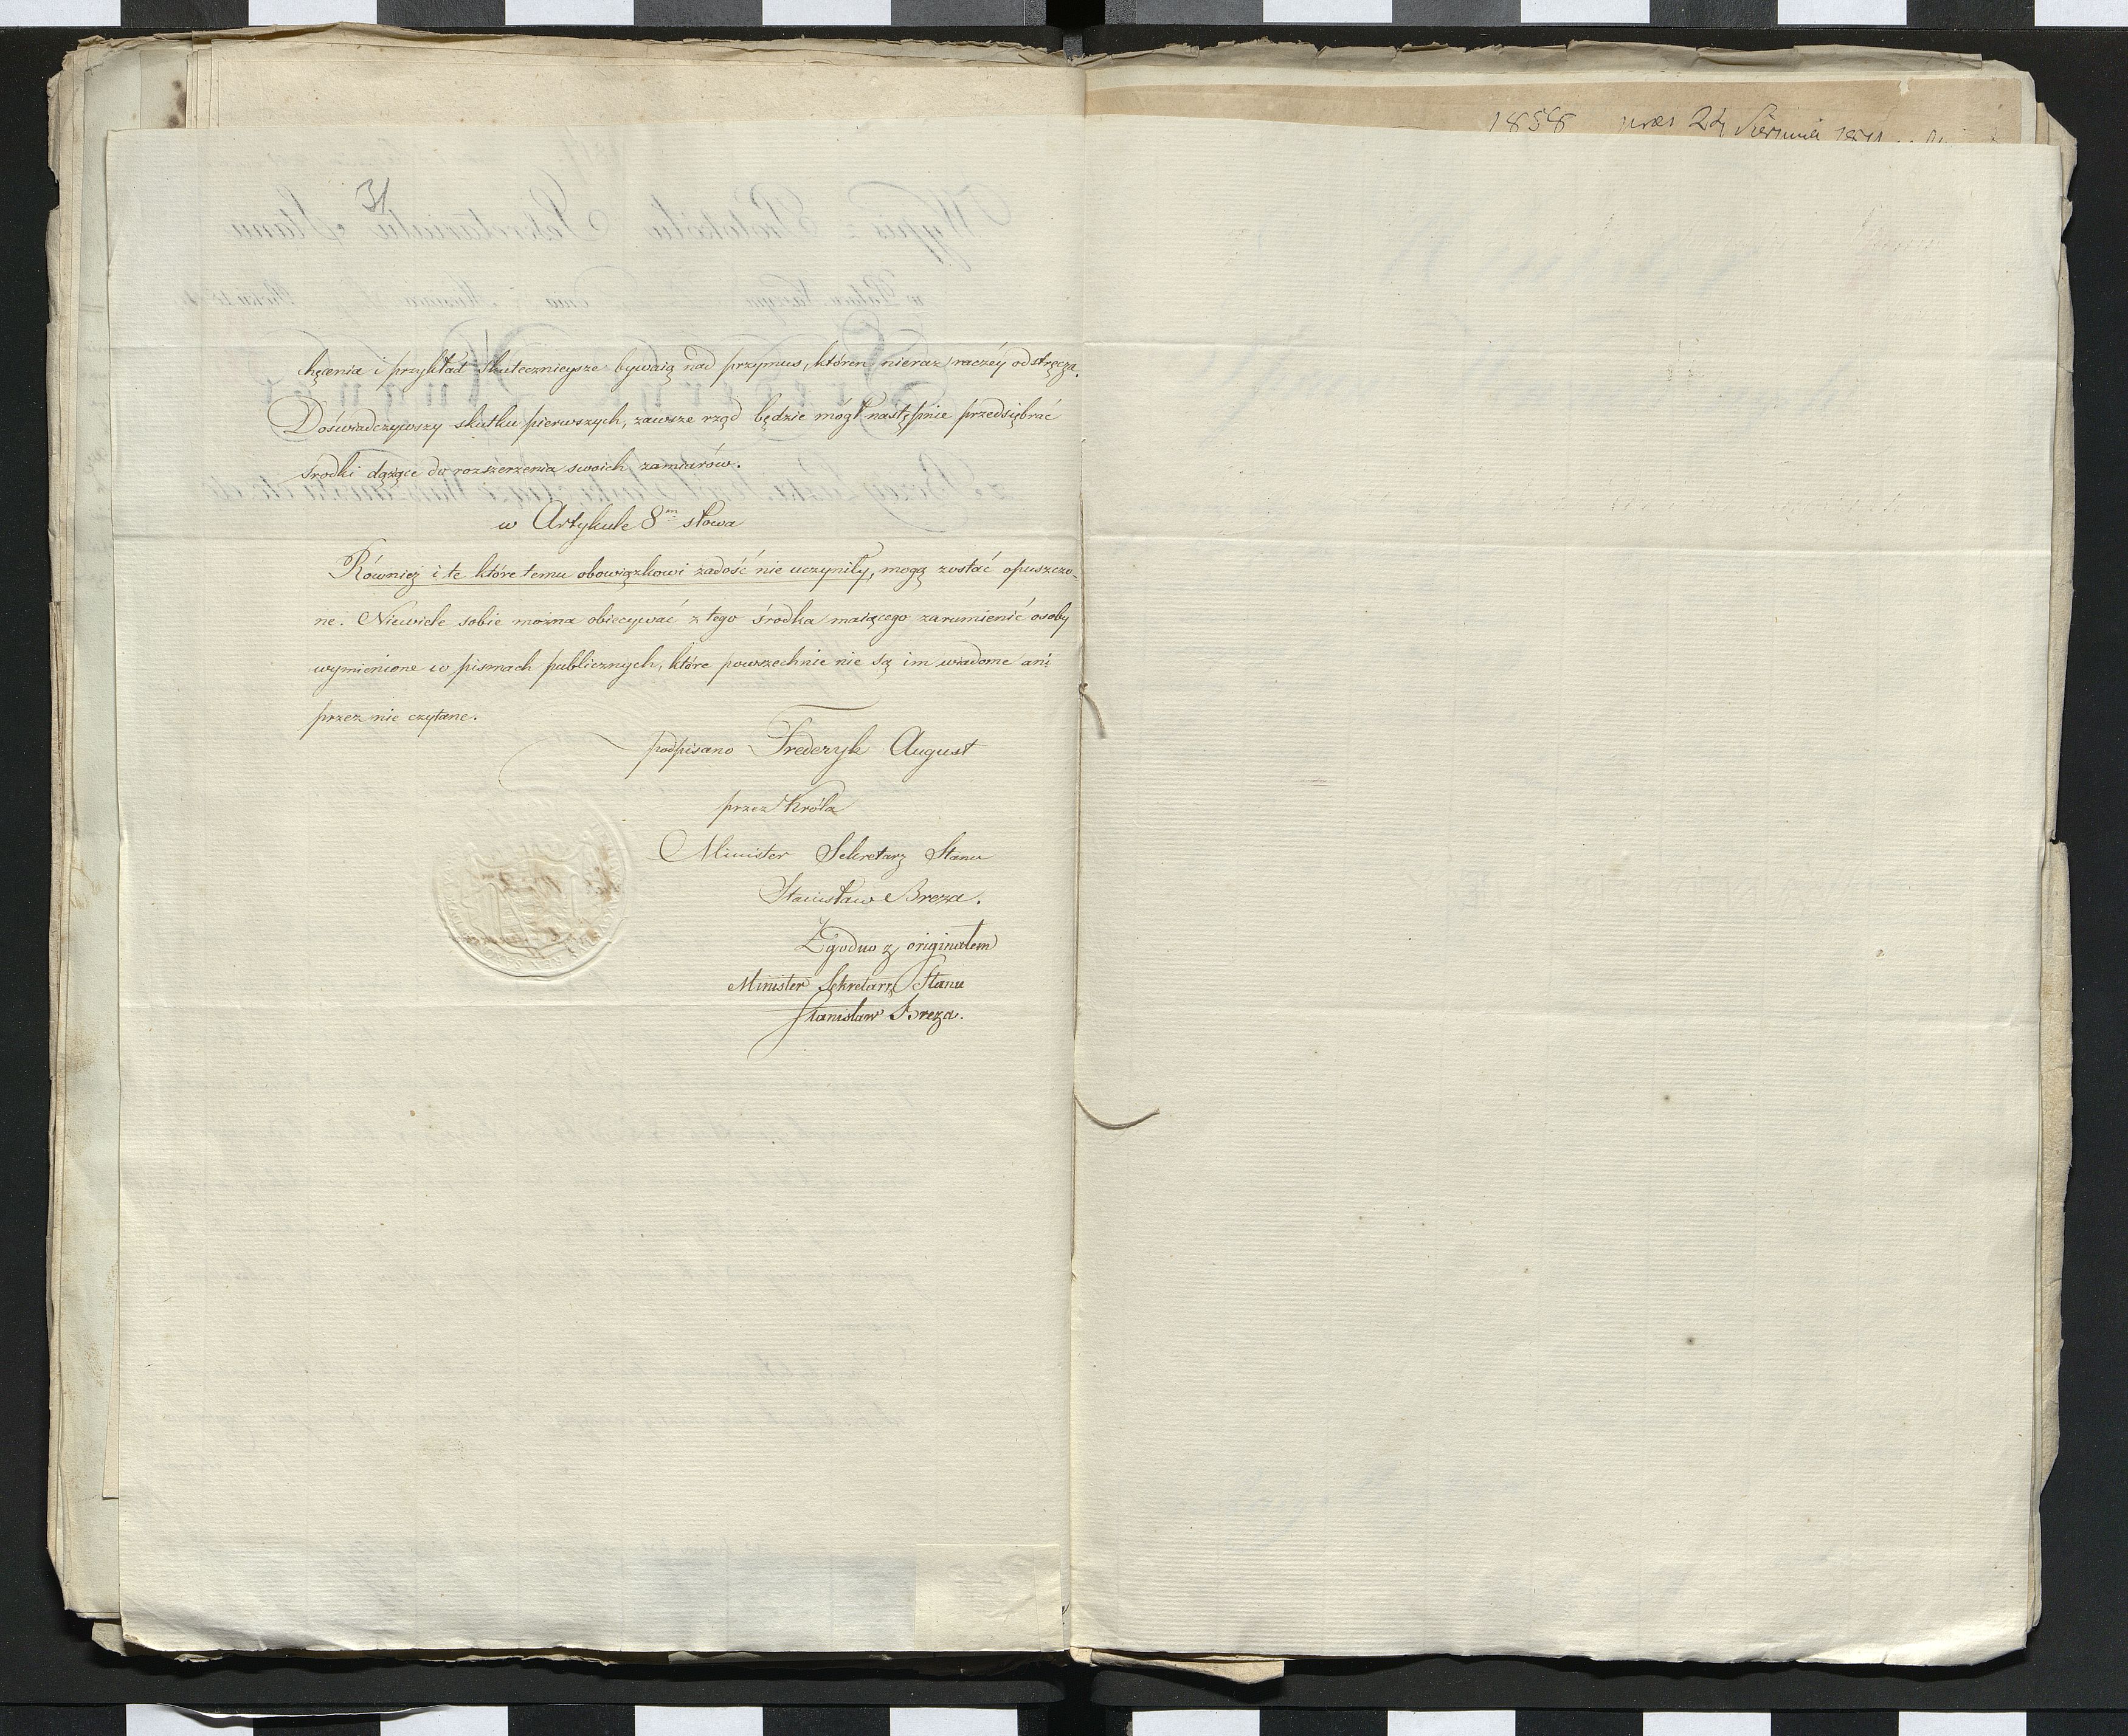 31
chęcenia i przykład skutecznieysze bywaią nad przymus, któren nieraz raczéy odstręcza.
Doświadczywszy skutku pierwszych, zawsze rząd będzie mógł następnie przedsiębrać
środki dążące do rozszerzenia swoich zamiarów.
w Artykule 8m słowa
Również i te które temu obowiązkowi zadość nie uczyniły, mogą zostać opuszczo-
ne. Niewiele sobie można obiecywać z tego środka maiącego zarumienić osoby
wymienione w pismach publicznych, które powszechnie nie są im wiadome ani
przez nie czytane.
podpisano Frederyk August
przez Króla
Minister Sekretarz Stanu
Stanisław Breza.
Zgodno z originałem
Minister Sekretarz Stanu
Stanisław Breza.
1858 præs 24 Sierpnia